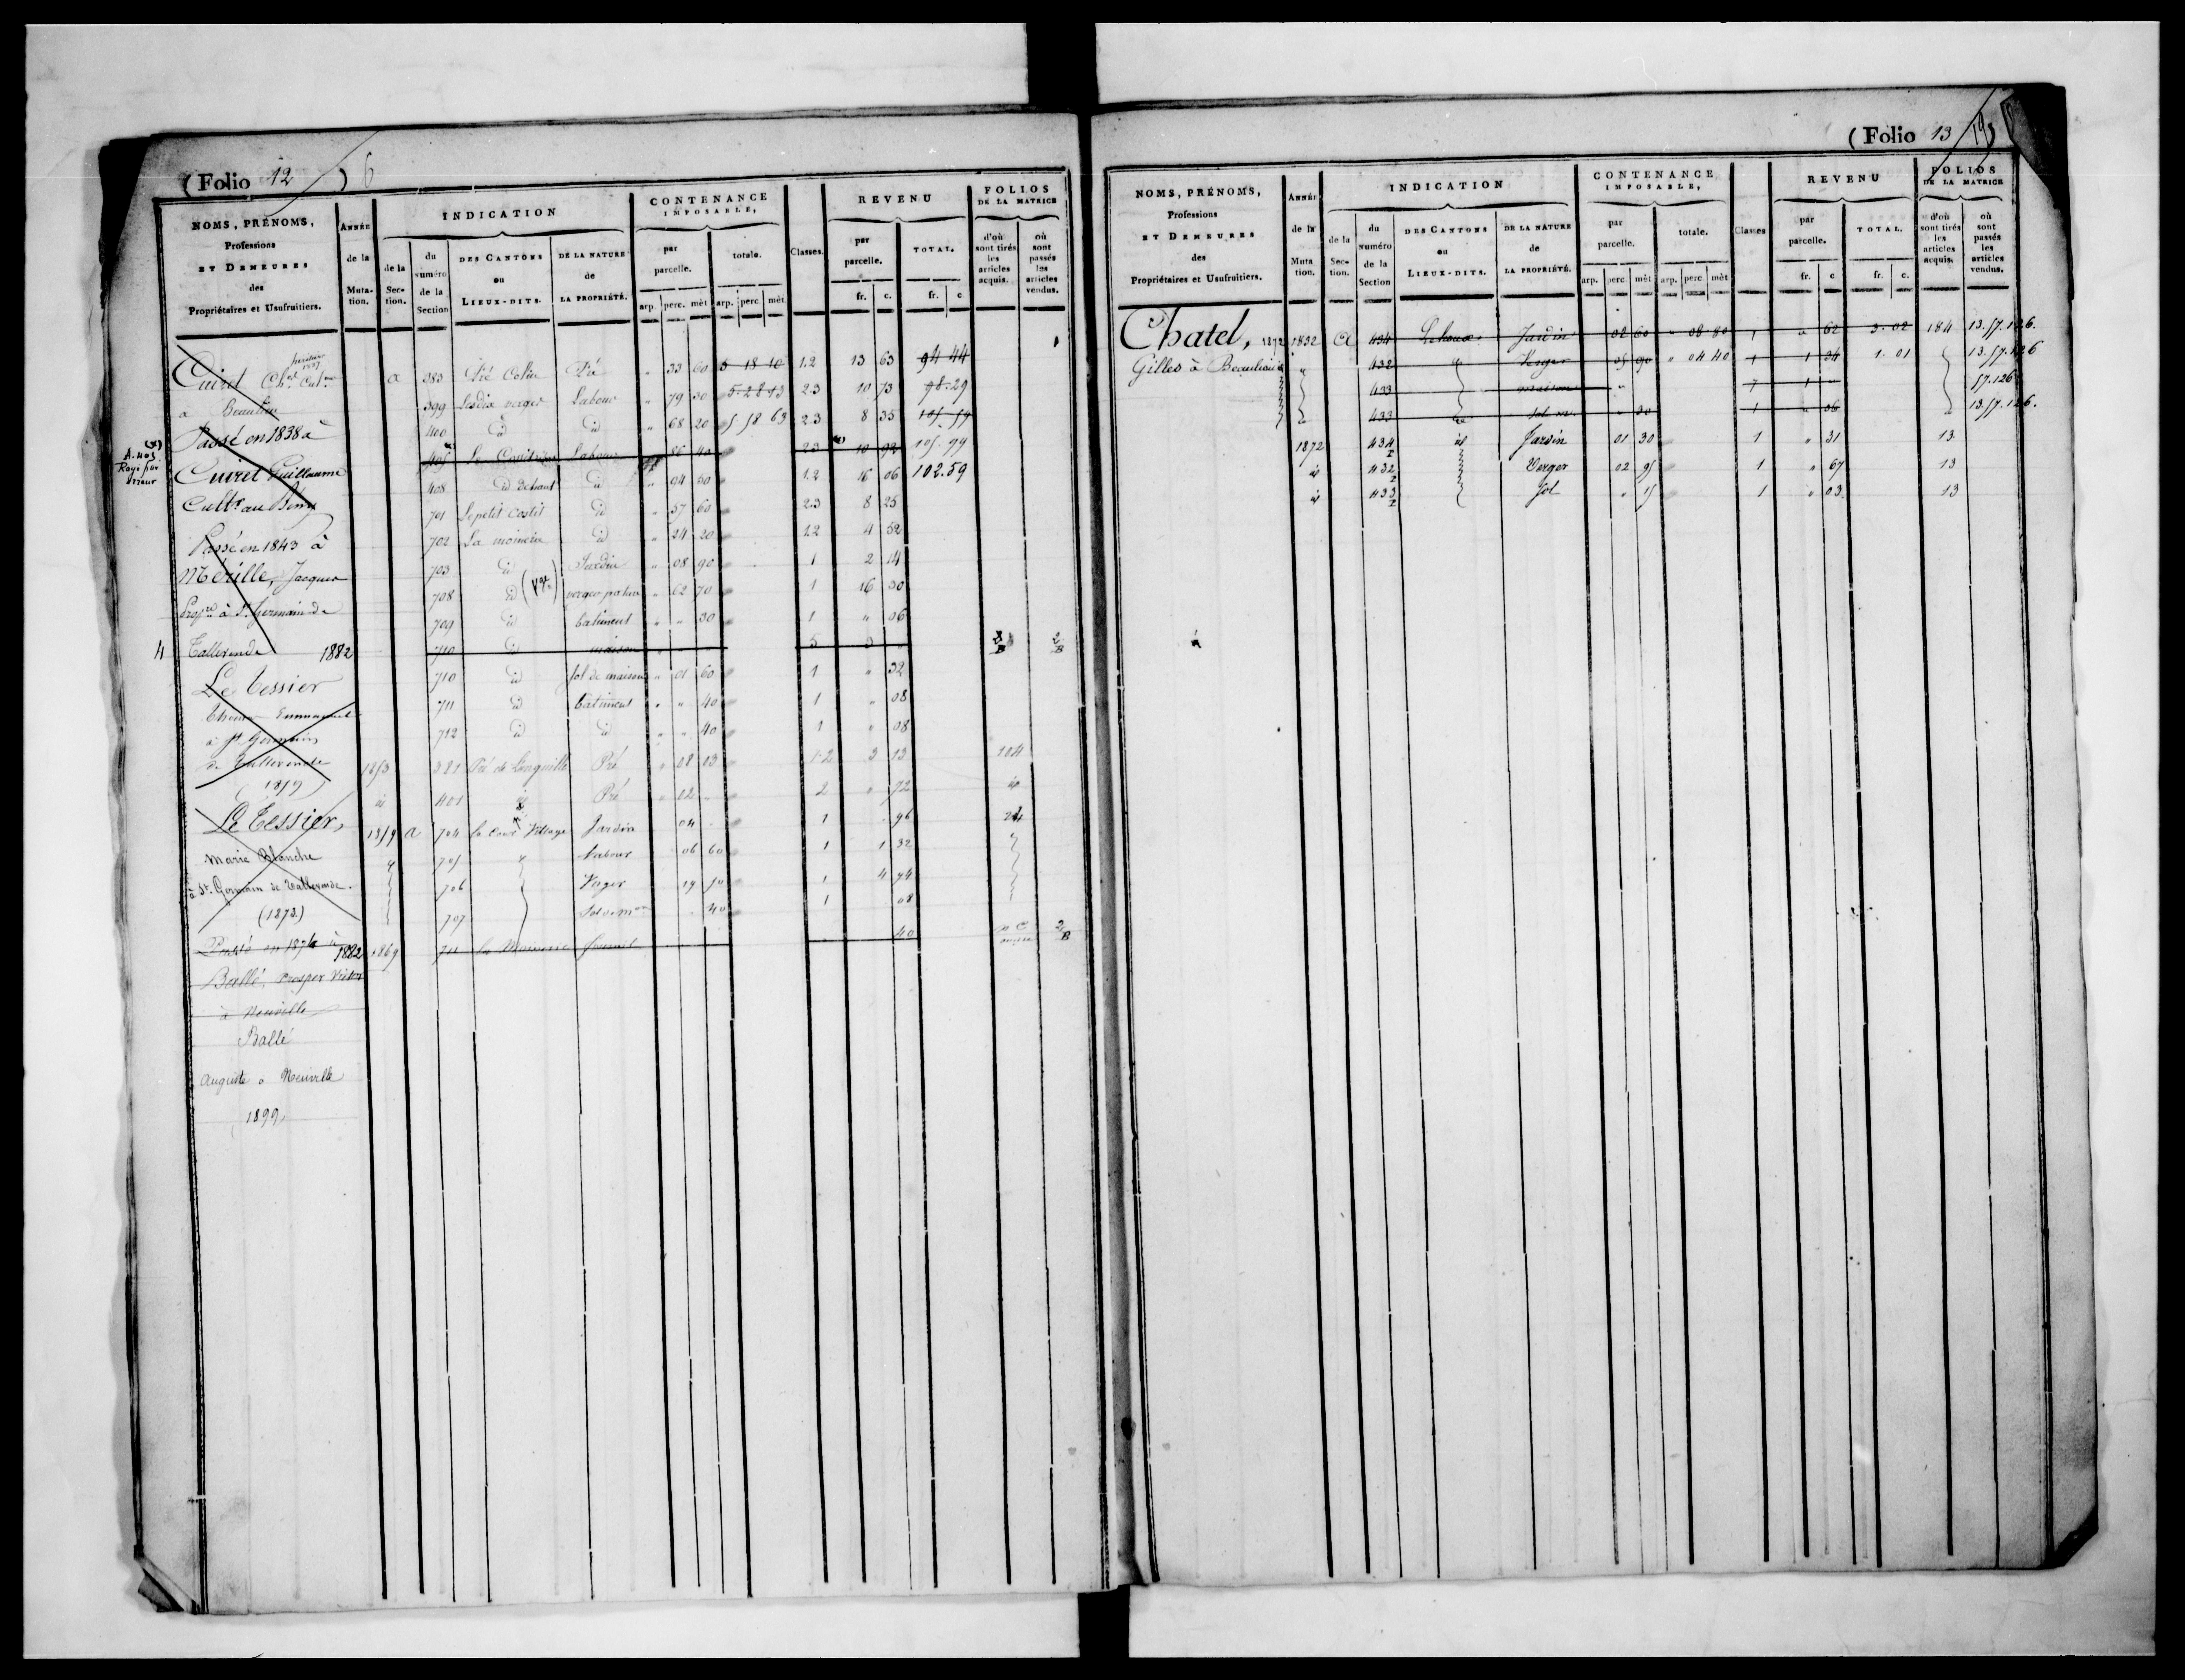 (Folio 12 ) 6
NOMS, PRÉNOMS, Professions ET DEMEURES des Propriétaires et Usufruitiers.
ANNÉE de la Mutation.
INDICATION
de la Section.
du numéro de la Section
DES CANTONS ou LIEUX-DITS.
DE LA NATURE de LA PROPRIÉTÉ.
CONTENANCE IMPOSABLE,
par parcelle.
totale.
arp. perc. mèt arp. perc mèt
Classes.
REVENU
par parcelle.
TOTAL.
fr. c. fr. c
FOLIOS DE LA MATRICE
d'où sont tirés les articles acquis.
où sont passés les articles vendus.
Cuiret
a 383 Pré Colin Pré " 33 60 5 18 10 1.2 13 63 94 44
à Beaulieu 399 Labour " 79 30 5-28-13 2.3 10 73 98-29
Passé en 1838 à 400 id id " 68 20 5 58 63 2.3 8 35 105-59
A. 405 Rayé par erreur
405 Labour 86 40 2.3 10 92 105.99
Cuiret Guillaume 408 id id " 94 50 1.2 16 06 102.59
Cultr au Bény 701 Le petit Costil id " 57 60 2.3 8 25
Passé en 1843 à 702 La moinerie id " 24 20 1.2 4 52
Mérille, Jacques 703 id Jardin " 08 90 1 2 14
Propre à St. Germain de 708 id verger " 62 70 1 16 30
709 id batiment " " 30 1 " 06
4 Tallevende 1882 710 id maison 5 3 "
Le Tessier 710 id sol de maison " 01 60 1 " 32
711 id batiment " " 40 1 " 08
à St Germain 712 id id " " 40 1 " 08
de Tallevende 1853 381 Pré de Pré " 08 03 1.2 3 13 104
(1859) id 401 id Pré " 02 " 2 " 72 id
Le Tessier, 1859 a 704 la Cour Village Jardin 04 1 96 24
Marie Blanche 705 Labour 06 60 1 1 32
à St. Germain de Tallevende. 706 Verger 19 1 4 94
(1873) 707 Sol de mon 40 1 08
Passé en 1876 à 1882 1869 711 la Moinerie 40 2 B
Ballé, Prosper Victor
à Neuville
Ballé
Auguste à Neuville
1899
(Folio 13 19)
NOMS, PRÉNOMS, Professions ET DEMEURES des Propriétaires et Usufruitiers.
ANNÉE de la Mutation.
INDICATION
de la Section.
du numéro de la Section
DES CANTONS ou LIEUX-DITS.
DE LA NATURE de LA PROPRIÉTÉ.
CONTENANCE IMPOSABLE,
par parcelle.
totale.
arp. perc mèt arp. perc mèt
Classes
REVENU
par parcelle.
TOTAL.
fr. c fr. c.
FOLIOS DE LA MATRICE
d'où sont tirés les articles acquis.
où sont passés les articles vendus.
Chatel, 1872 1832 a 434 Jardin 02 60 " 08 80 1 " 62 3.02 184 13.57.126.
Gilles à Beaulieu 432 Verger 05 90 " 04 40 1 1 34 1.01 13.57.126
433 maison " 7 1 " 57.126
433 Sol " 30 1 " 36 13.57.126.
1872 434 id Jardin 01 30 1 " 31 13
id 432 Verger 02 95 1 " 67 13
id 433 Sol " 15 1 " 03 13